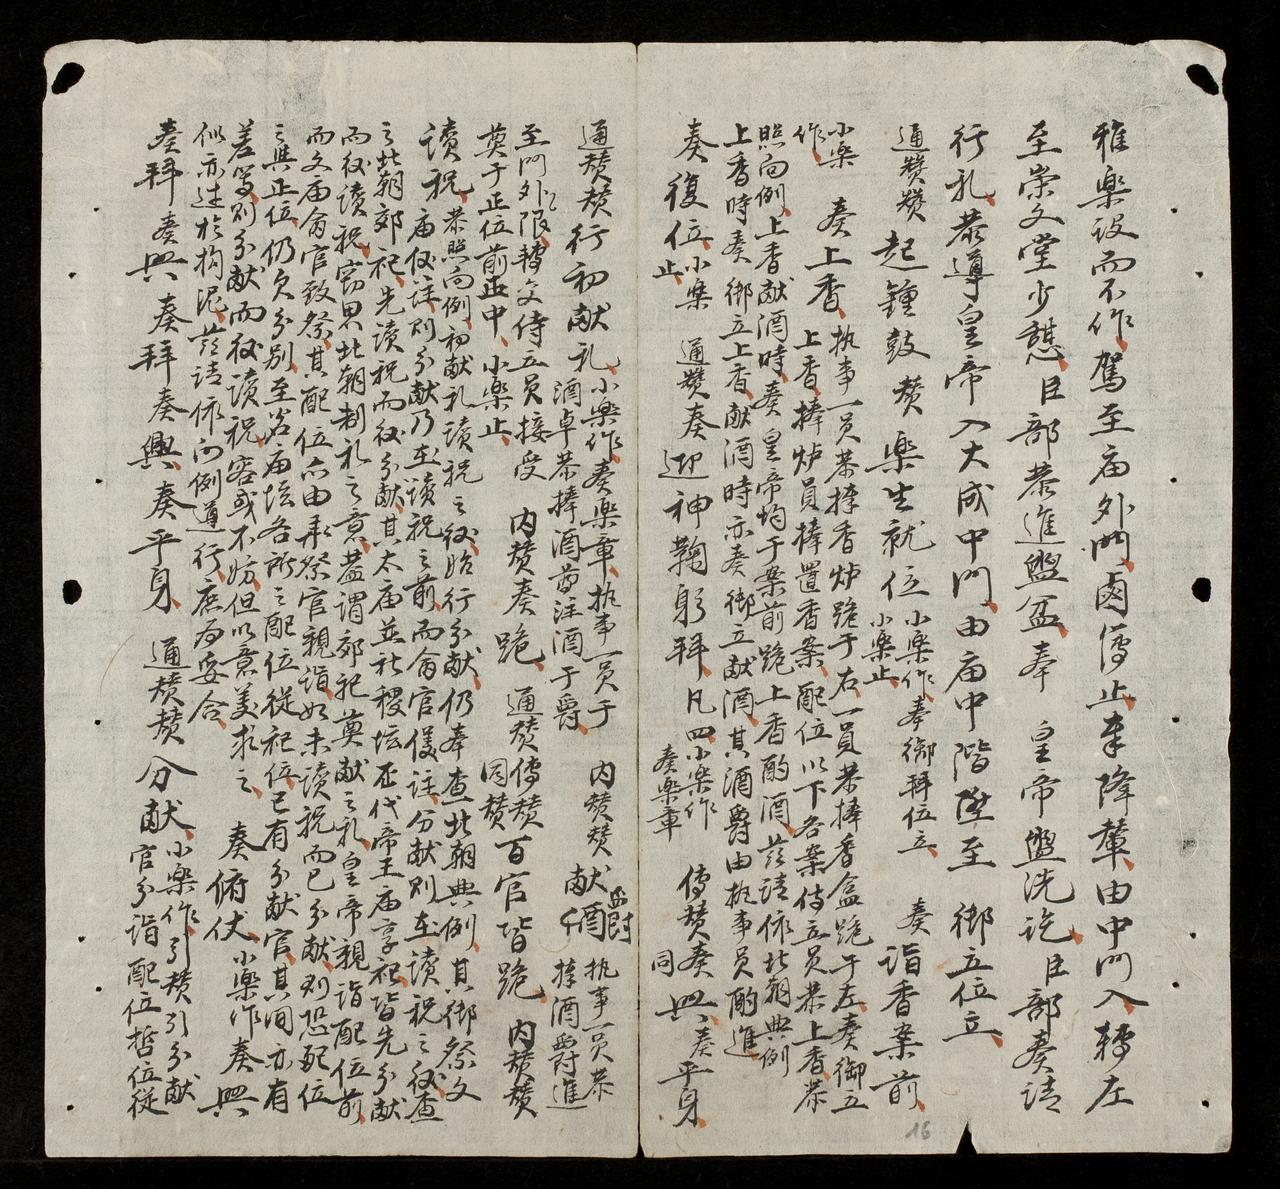 雅楽設而不作駕至庙外門鹵傳止車降輦由中門入轉左
至崇文堂少憩臣部恭進盥盆奉 皇帝盥洗訖臣部奏請
行礼恭導皇帝入大成中門由庙中階陞至 御立位立
通贊贊起鍾鼓贊 楽生就位 小楽作奏御拜位立
小楽止 奏詣香案前
小楽作 奏上香 执事一員恭捧香炉跪于右一員恭捧香盒跪于左奏御立
上香捧炉員捧置香案配位以下各案侍立員恭上香恭
照向例上香献酒時奏皇帝均于案前跪上香酌酒茲請依北朝典例
上香時奏御立上香献酒時亦奏御立献酒其酒爵由执事員酌進
奏復位 小楽止 通贊奏迎神鞠躬拜凡四 小楽作奏楽章 傳贊奏同 興奏平身
通贊贊行初献礼 小楽作奏楽章执事一員于
酒卓恭捧酒尊注酒于爵 内贊贊献爵酒 执事一員恭
捧酒爵進
至門外限轉交侍立員接受 内贊奏跪 通贊傳贊同贊 百官皆跪 内贊贊
奠于正位前正中 小楽止
讀祝 恭照向例初献礼讀祝之後始行分献仍奉查北朝典例其御祭文
庙仪注則分献乃在讀祝之前而翕官仪註分献則在讀祝之後查
之北朝郊祀先讀祝而後分献其太庙並社稷坛歷代帝王庙享祀皆先分献
而後讀祝窃思北朝制礼之意葢謂郊祀奠献之礼皇帝親詣配位前
而文庙翕官致祭其配位亦由承祭官親詣如未讀祝而已分献則恐配位
之與正位仍欠分别至若庙坛各所之配位從祀位已有分献官其间亦有
差等則分献而後讀祝容或不妨但以意美求之
似亦近於拘泥茲請依向例遵行庶为妥合 奏俯伏 小楽作奏興
奏拜奏興奏拜奏興奏平身 通贊贊分献 小楽作引贊引分献
官分詣配位哲位從
16